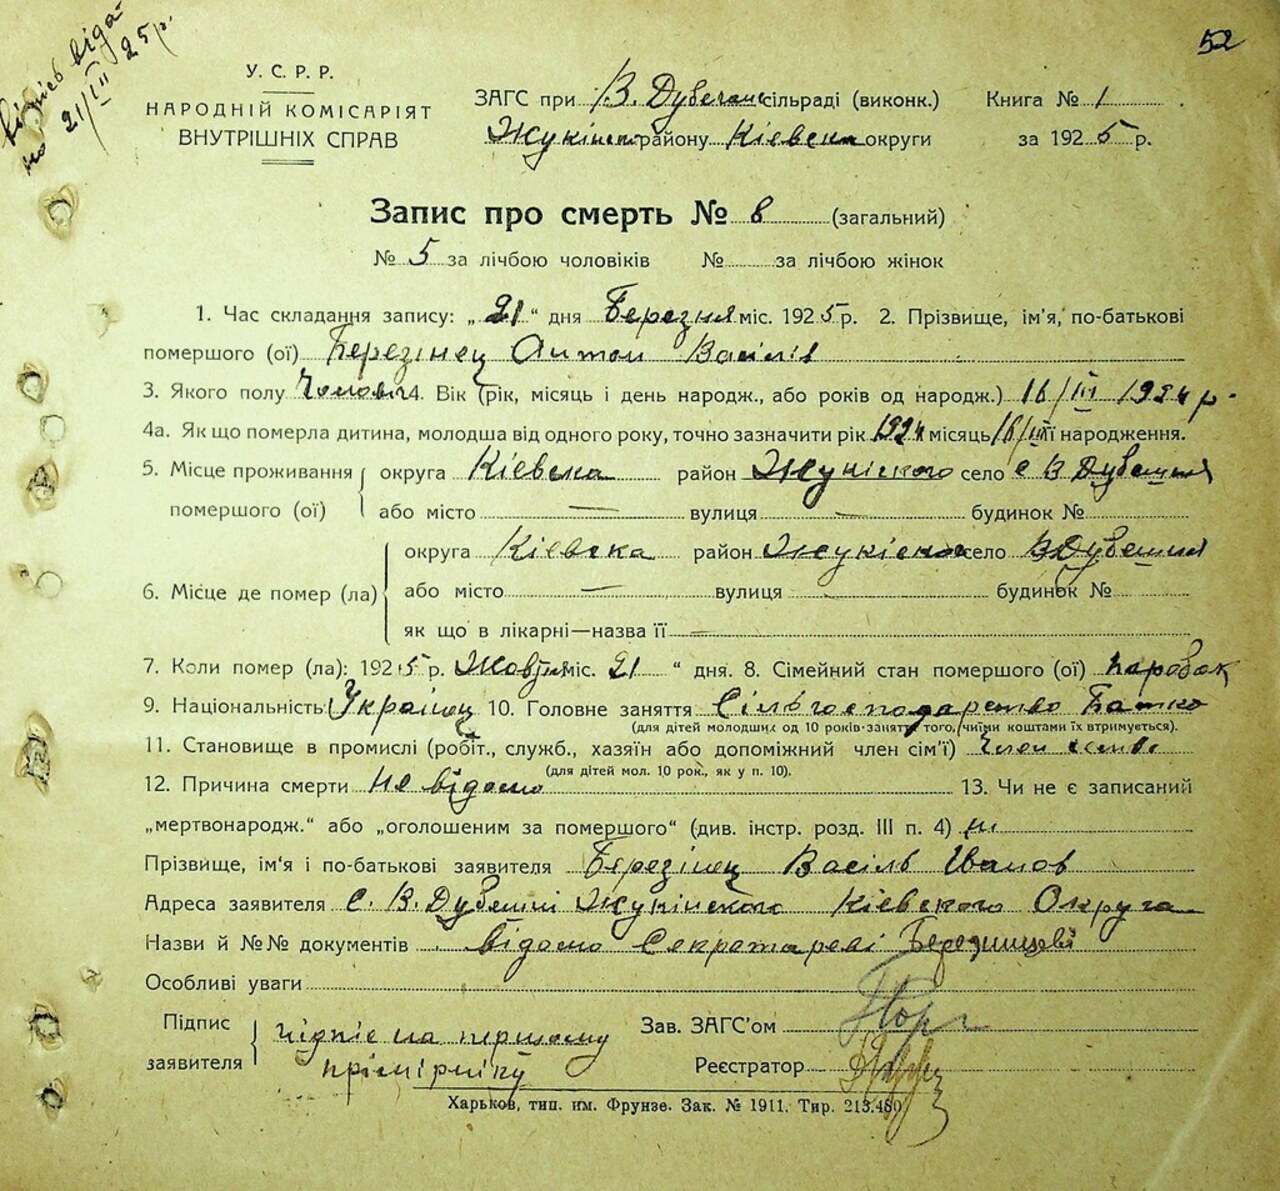 52
Випісь видано 21/III 25 р.
У. С. Р. Р.
НАРОДНІЙ КОМІСАРІЯТ
ВНУТРІШНІХ СПРАВ
ЗАГС при В. Дубечан сільраді (виконк.) Книга № 1
Жукінськ району Кіевска округи за 1925 р.
Запис про смерть № 8 (загальний)
№ 5 за лічбою чоловіків № за лічбою жінок
1. Час складання запису: „21“ дня Березня міс. 1925 р. 2. Прізвище, ім'я, по-батькові
помершого (ої) Березінец Антон Васілів
3. Якого полу Чоловіч 4. Вік (рік, місяць і день народж., або років од народж.) 16/III 1924 р.
4а. Як що померла дитина, молодша від одного року, точно зазначити рік 1924 місяць 16/III її народження.
5. Місце проживання помершого (ої) округа Кіевска район Жукінского село с В Дубешня
або місто — вулиця — будинок №
6. Місце де помер (ла) округа Кіевска район Жукінског село В Дубешня
або місто — вулиця будинок №
як що в лікарні—назва її —
7. Коли помер (ла): 1925 р. Жовтня міс. 21 “ дня. 8. Сімейний стан помершого (ої) паробок
9. Національність Українец 10. Головне заняття Сільгосподарство Батко
(для дітей молодших од 10 років-заняття того, чиїми коштами їх втримується).
11. Становище в промислі (робіт., служб., хазяїн або допоміжний член сім'ї) Член
(для дітей мол. 10 рок., як у п. 10).
12. Причина смерти Не відомо 13. Чи не є записаний
„мертвонародж.“ або „оголошеним за помершого“ (див. інстр. розд. III п. 4) ні
Прізвище, ім'я і по-батькові заявителя Березінец Васіль Іванов
Адреса заявителя С. В. Дубешні Жукінського Кіевского Округа
Назви й №№ документів Відомо Секретареві
Особливі уваги
Підпис заявителя підпіс на першому прімірніку
Зав. ЗАГС'ом
Реєстратор
Харьков, тип. им. Фрунзе. Зак. № 1911. Тир. 213.480